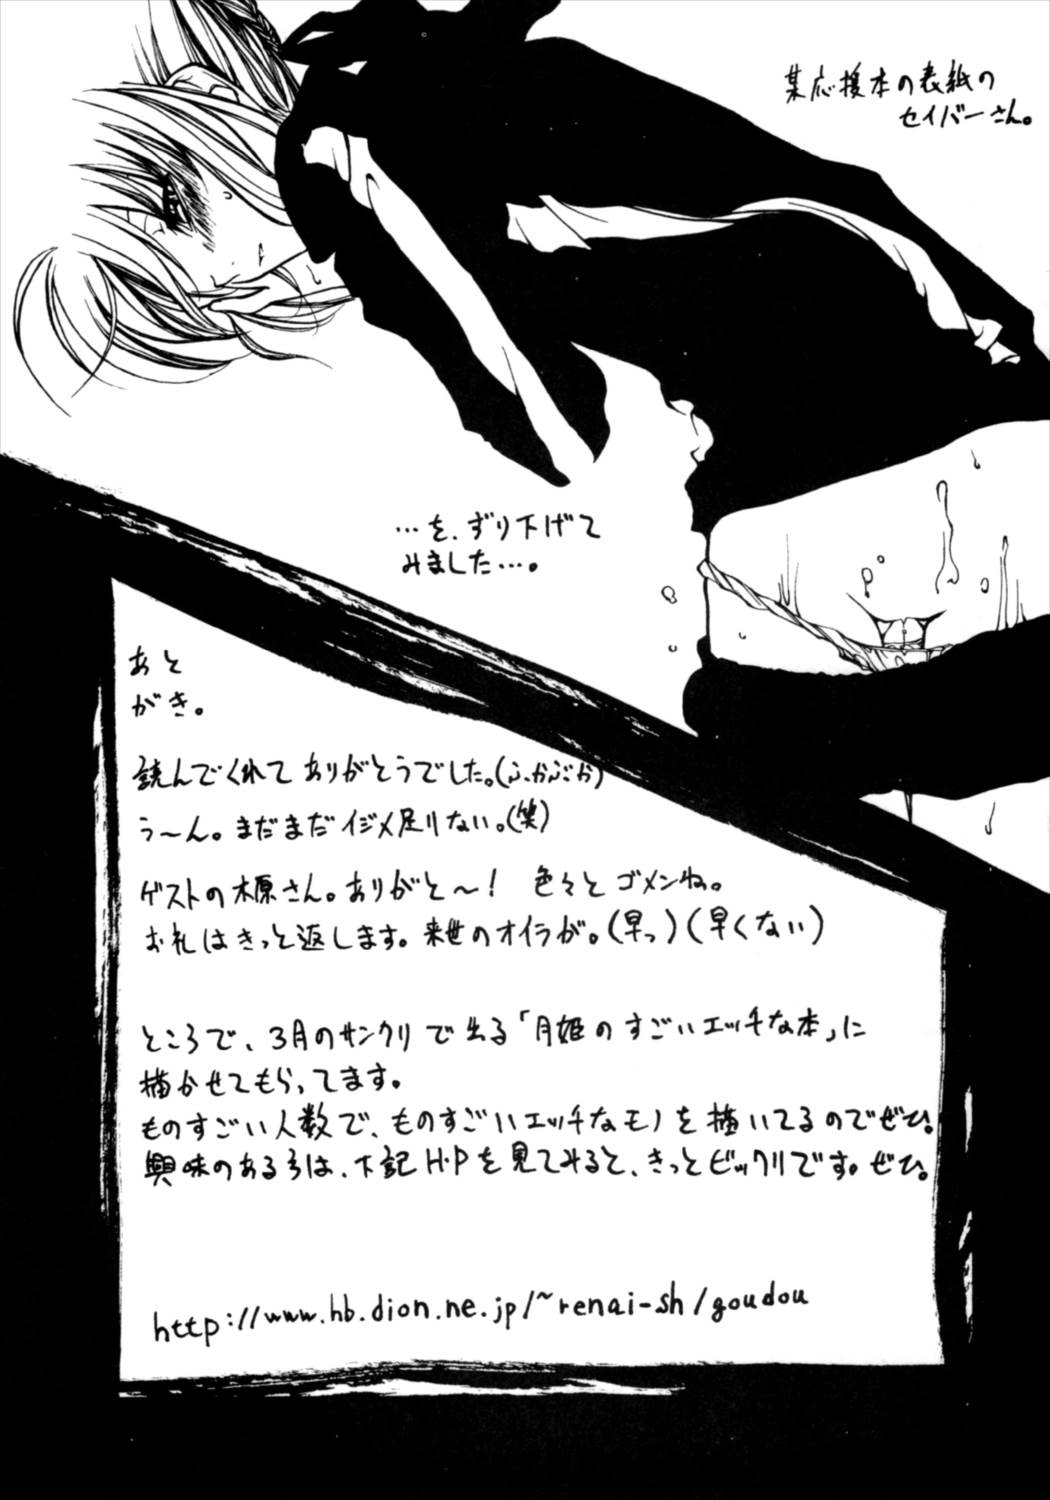 某応援本の表紙の
セイバーさん。
…を、ずり下げて
みました…。
あと
がき。
読んでくれてありがとうでした。(ふかぶか)
う〜ん。まだまだイジメ足りない。(笑)
ゲストの木原さん。ありがと〜! 色々とゴメンね。
お礼はきっと返します。来世のオイラが。(早っ)(早くない)
ところで、3月のサンクリで出る「月姫のすごいエッチな本」に
描かせてもらってます。
ものすごい人数で、ものすごいエッチなモノを描いてるのでぜひ。
興味のある方は、下記H・Pを見てみると、きっとビックリです。ぜひ。
http://www.hb.dion.ne.jp/~renai-sh/goudou